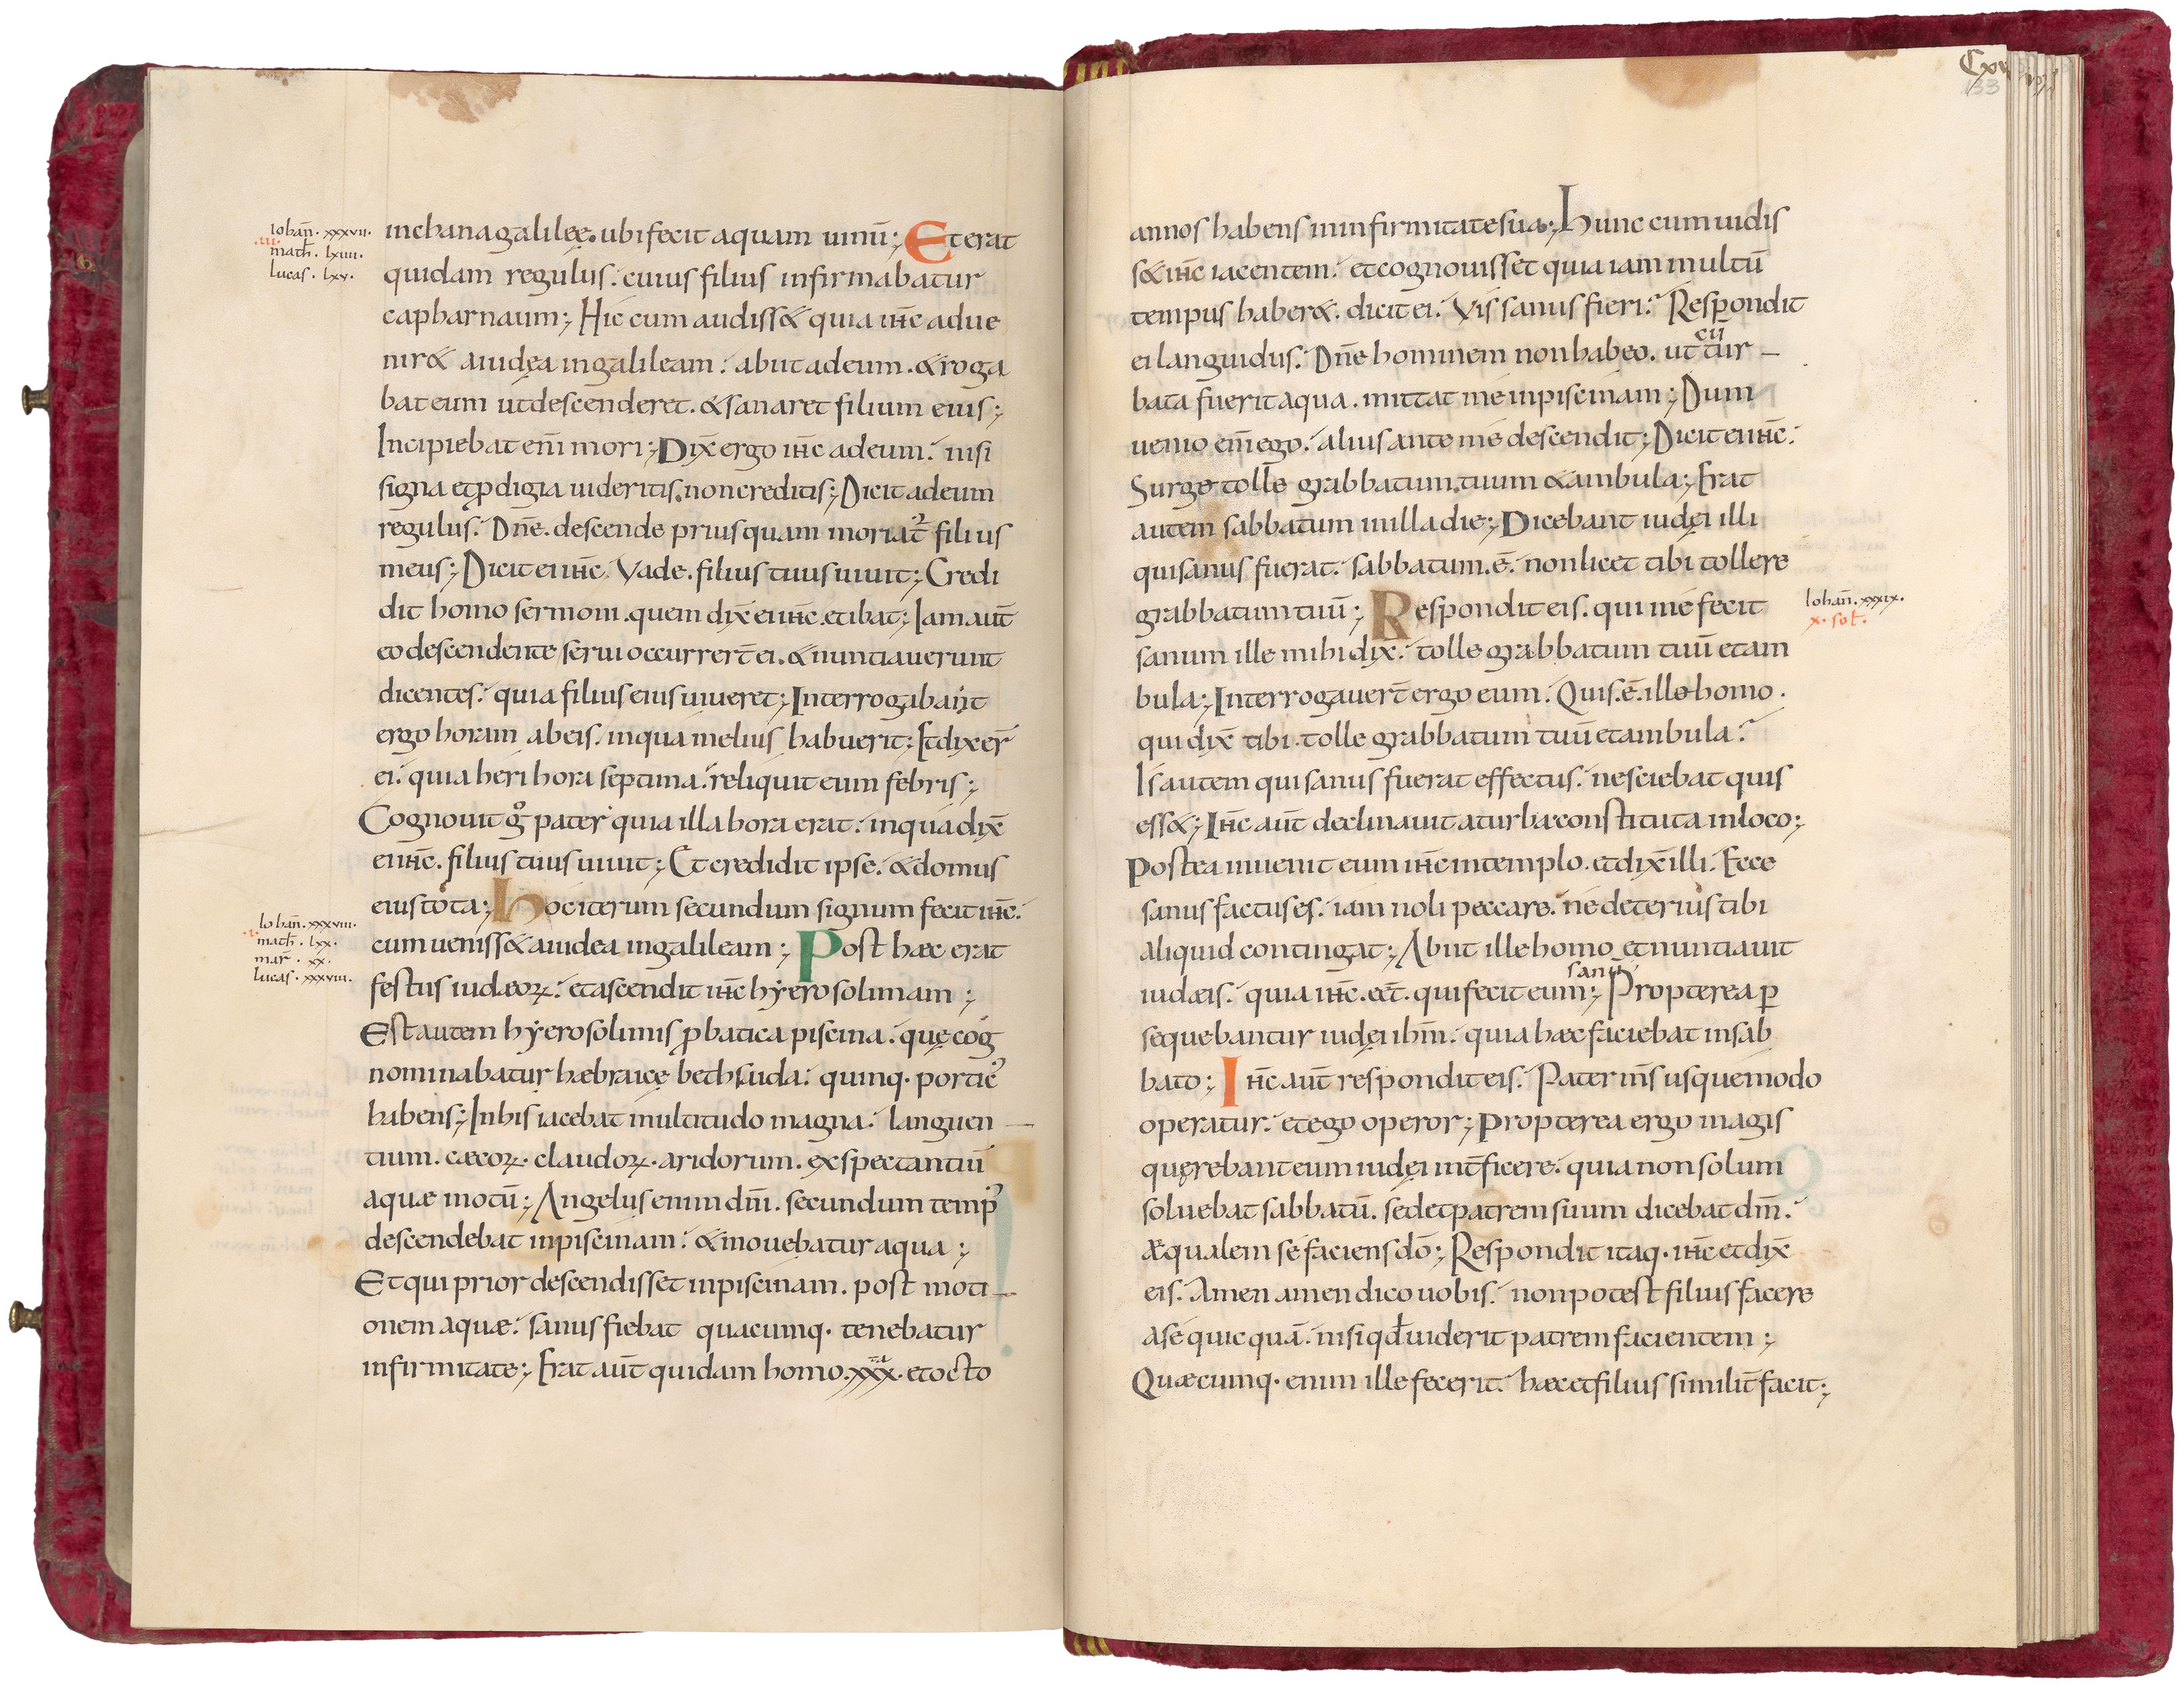 iohañ. xxxvii.
.iii.
math̄. lxiiii.
lucas. lxv.
inchanagalileę. ubi fecit aquam uinū; Et erat
quidam regulus. cuius filius infirmabatur
capharnaum; Hic cum audiss& quia ihc̄ adue
nir& aiudęa ingalileam. abiit adeum. &roga
bateum utdescenderet. &sanaret filium eius;
Incipiebat em̄ mori; Dix̄ ergo ihc̄ adeum. nisi
signa etꝓdigia uideritis. noncreditis; Dicit adeum
regulus. Dn̄e. descende priusquam moriat᷑ filius
meus; Dicit ei ihc̄. Vade. filius tuus uiuit; Credi
dit homo sermoni. quem dix̄ ei ihc̄. etibat; Iam aut̄
eo descendente serui occurrer̄t ei. &nuntiauerunt
dicentes. quia filius eius uiueret; Interrogabant
ergo horam abeis. inqua melius habuerit; Etdixer̄
ei. quia heri hora septima. reliquit eum febris;
Cognouit gͦ pater quia illa hora erat. inqua dix̄
ei ihc̄. filius tuus uiuit; Et credidit ipse. &domus
eius tota; Hoc iterum secundum signum fecit ihc̄.
iohañ. xxxviii.
.i.
math̄. lxx.
mar̄. xx.
lucas. xxxviii.
cum ueniss& aiudea ingalileam; Post hæc erat
festus iudæoꝝ. etascendit ihc̄ hyerosolimam;
Est autem hyerosolimis ꝓbatica piscina. quę cog
nominabatur hæbraicę bethsaida. quinq. portic᾽
habens; Inhis iacebat multitudo magna. languen
tium. cæcoꝝ. claudoꝝ. aridorum. exspectantiū
aquæ motū; Angelus enim dn̄i. secundum temp᾽
descendebat inpiscinam. &mouebatur aqua;
Et qui prior descendisset inpiscinam. post moti
onem aquæ. sanus fiebat quacumq. tenebatur
infirmitate; Erat aut̄ quidam homo. xxx. etocto
Cxv
133
annos habens ininfirmitate sua; Hunc cum uidis
s& ihc̄ iacentem. etcognouisset quia iam multū
tempus haber&. dicit ei. Vis sanus fieri? Respondit
ei languidus. Dn̄e hominem nonhabeo. ut cū tur
bata fuerit aqua. mittat me inpiscinam; Dum
uenio em̄ ego. alius ante me descendit; Dicit ei ihc̄.
Surge tolle grabbatum tuum &ambula; Erat
autem sabbatum inilla die; Dicebant iudęi illi
qui sanus fuerat. sabbatum. ē. nonlicet tibi tollere
grabbatum tuū; Respondit eis. qui me fecit
iohañ. xxxix.
x. sol̄.
sanum ille mihi dix̄. tolle grabbatum tuū etam
bula; Interrogauer̄t ergo eum. Quis. ē. ille homo.
qui dix̄ tibi. tolle grabbatum tuū etambula?
Is autem qui sanus fuerat effectus. nesciebat quis
ess&; Ihc̄ aut̄ declinauit aturba constituta inloco;
Postea inuenit eum ihc̄ intemplo. etdix̄ illi. Ecce
sanus factus es. iam noli peccare. ne deterius tibi
aliquid contingat; Abiit ille homo. etnuntiauit
iudæis. quia ihc̄. eēt. qui fecit eum sanū; Propterea ꝑ
sequebantur iudęi ihm̄. quia hæc faciebat insab
bato; Ihc̄ aut̄ respondit eis. Pater ms̄ usquemodo
operatur. etego operor; Propterea ergo magis
quęrebant eum iudęi int̄ficere. quia non solum
soluebat sabbatū. sedetpatrem suum dicebat dm̄.
Æqualem se faciens dō; Respondit itaq. ihc̄ etdix̄
eis. Amen amen dico uobis. nonpotest filius facere
ase quicquā. nisi qd̄ uiderit patrem facientem;
Quæcumq. enim ille fecerit. hæcetfilius similit̄ facit;